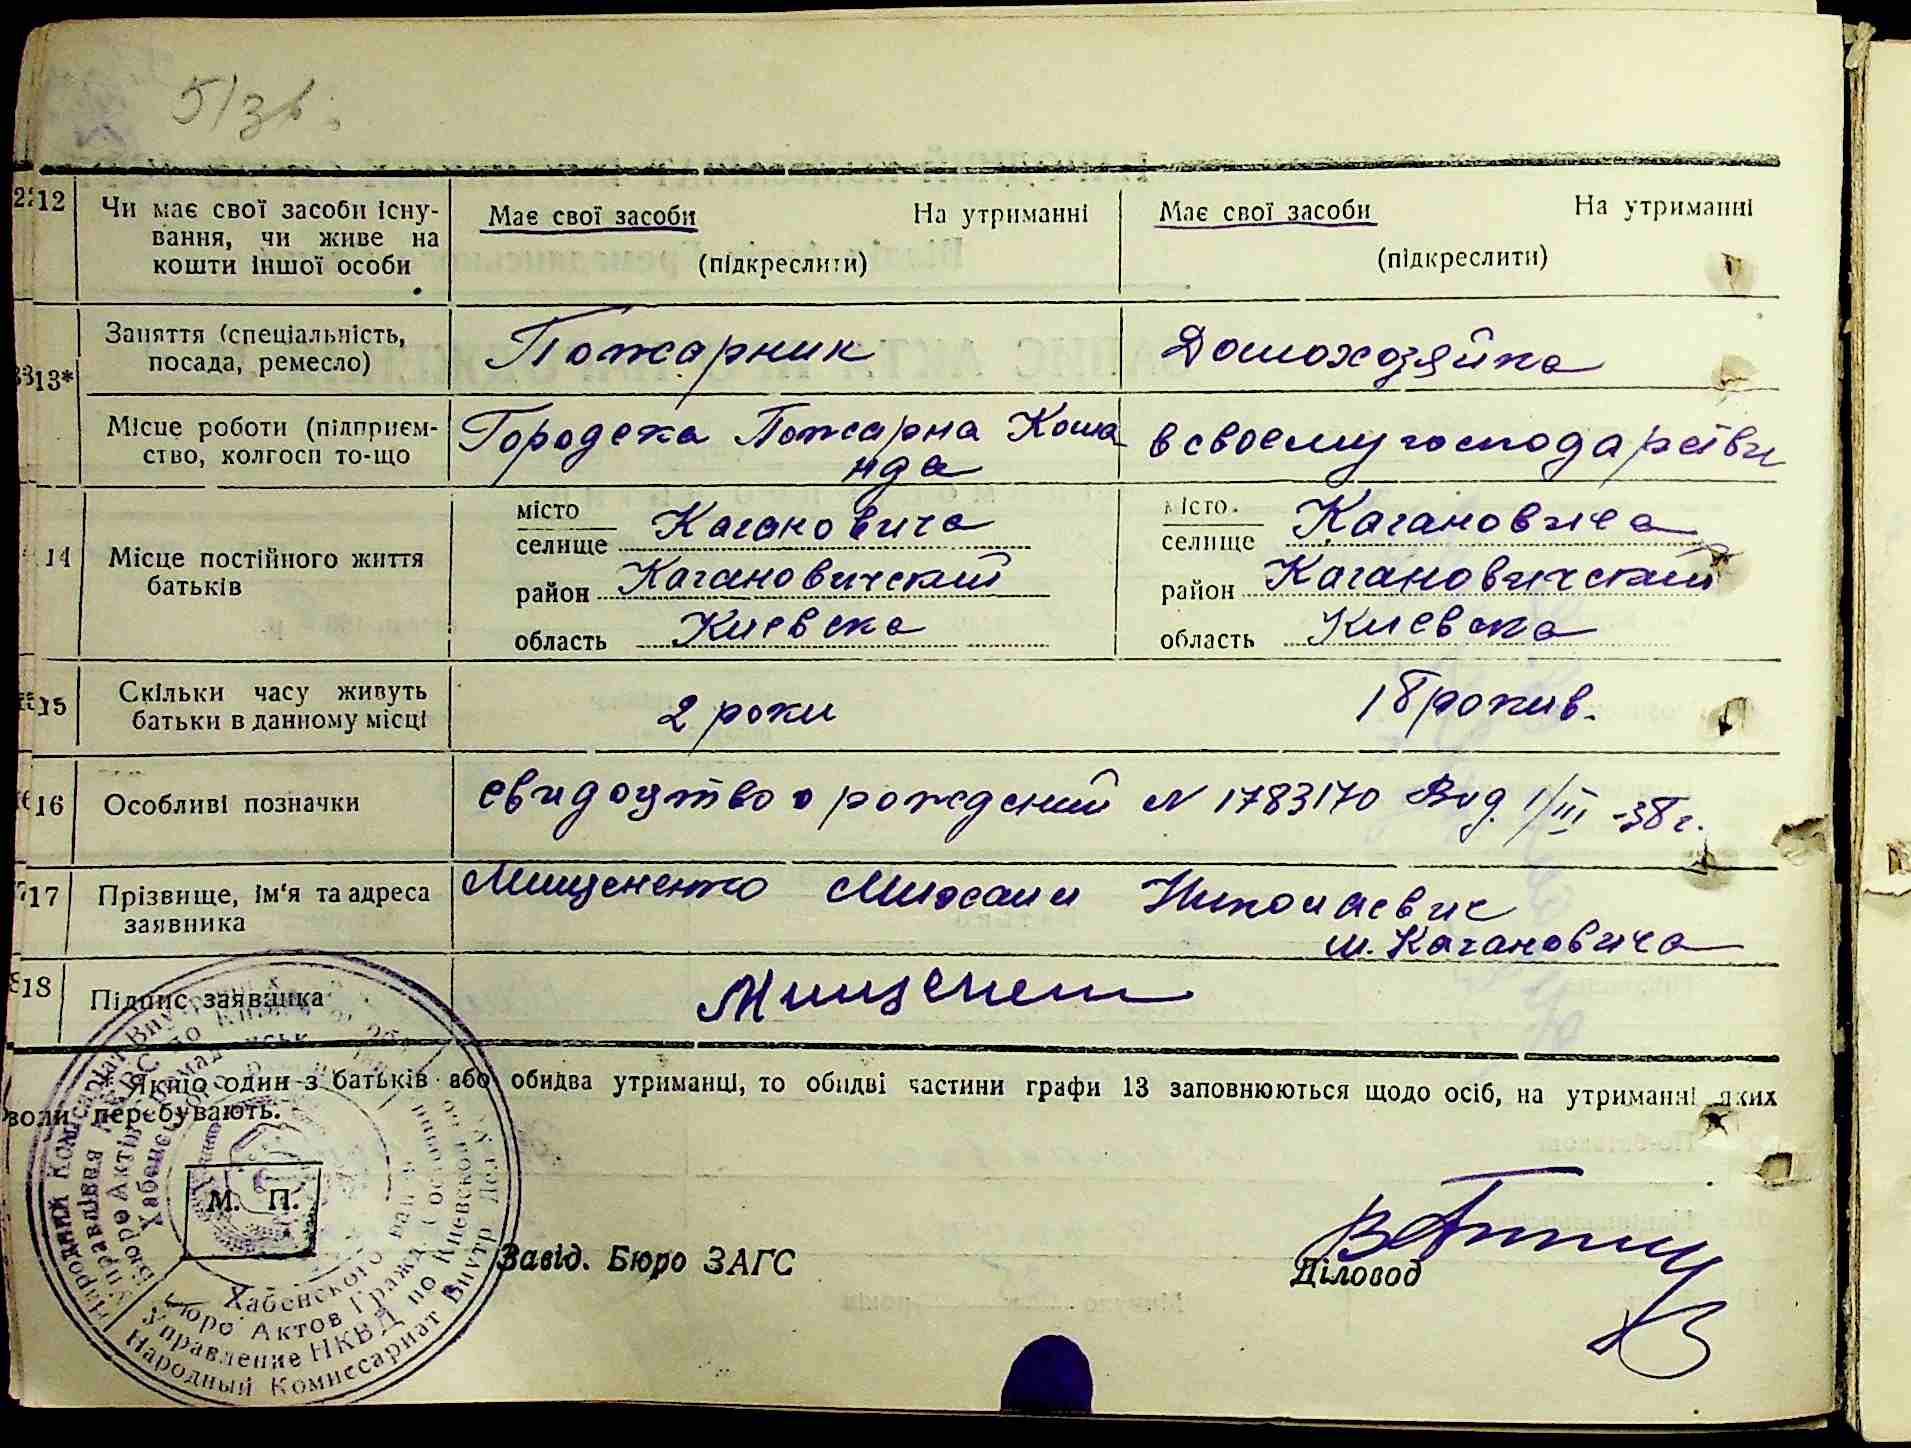 51зв.
12 Чи має свої засоби існу- Має свої засоби На утриманні Має свої засоби На утриманні
вання, чи живе на
кошти іншої особи (підкреслити) (підкреслити)
13* Заняття (спеціальність, Пожарник Домохозяйка
посада, ремесло)
Місце роботи (підприєм- Городска Пожарна Кома в своему господарстви
ство, колгосп то-що нда
14 Місце постійного життя місто Кагановича місто Кагановича
батьків селище селище
район Кагановичский район Кагановичский
область Киевска область Киевска
15 Скільки часу живуть 2 роки 18 рокив.
батьки в данному місці
16 Особливі позначки свидоцтво о рождений N 1783170 Вид. 1/III-38 г.
17 Прізвище, ім'я та адреса Мищененко Михаил Николаевич
заявника м. Кагановича
18 Підпис заявника Мищенен
Якщо один з батьків або обидва утриманці, то обидві частини графи 13 заповнюються щодо осіб, на утриманні яких
воли перебувають.
М. П.
Завід. Бюро ЗАГС
Діловод
Народний Комісаріат Внутр
Управління НКВС по Київ
Бюро Актів Громадянськ
Хабенс
Хабенского
Бюро Актов Гражд. Состояния
Управление НКВД по Киевской
Народный Комиссариат Внутр Дел